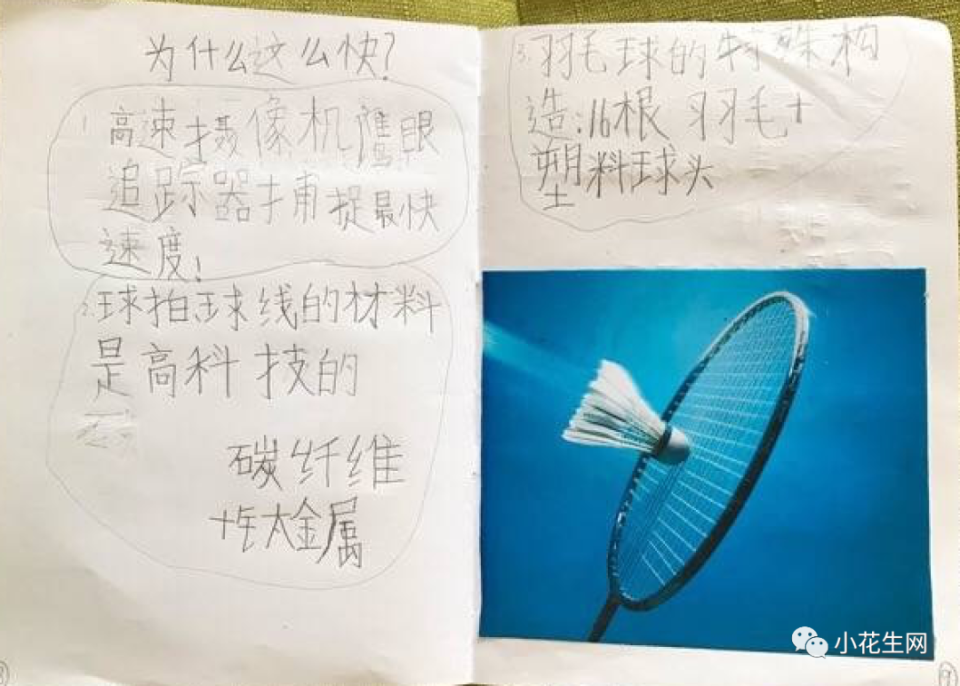 为什么这么快?
1.高速摄像机鹰眼
追踪器捕捉最快
速度!
2.球拍球线的材料
是高科技的
碳纤维
+钛金属
3.羽毛球的特殊构
造:16根羽毛+
塑料球头
小花生网